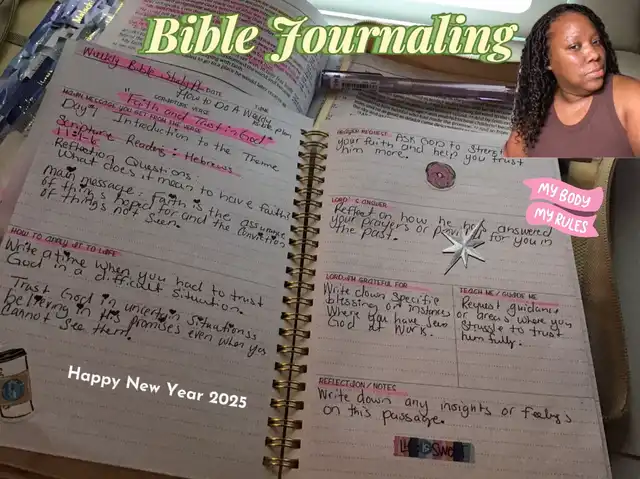 Bible Journaling
Weekly Bible Study
DATE
TIME
How to Do A Weekly
Bible plan
SCRIPTURE VERSE
"Faith and Trust in God"
MAIN MESSAGE YOU GET FROM THE VERSE
Day 1 Introduction to the Theme
Scripture Reading: Hebrews
11:1-6
Reflection Questions:
What does it mean to have faith?
main message: faith is the assurance
of things hoped for and the conviction
of things not seen.
HOW TO APPLY IT TO LIFE
Write a time when you had to trust
God in a difficult situation.
Trust God in uncertain situations
believing in his promises even when you
cannot see them.
Happy New Year 2025
PRAYER REQUEST
Ask God to strengthen
your faith and help you trust
him more.
LORD'S ANSWER
Reflect on how he has answered
your prayers or for you in
the past.
LORD I'M GRATEFUL FOR
Write down specific
blessings or instances
Where you have seen
God at work.
TEACH ME / GUIDE ME
Request guidance
or areas where you
struggle to trust
him fully.
REFLECTION / NOTES
Write down any insights or feelings
on this passage.
MY BODY
MY RULES